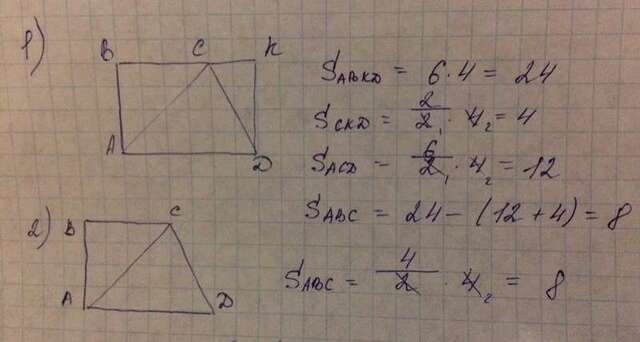 1)
B C K
A D
S_ABKD = 6 · 4 = 24
S_CKD = 2/2₁ · 4₂ = 4
S_ACD = 6/2₁ · 4₂ = 12
S_ABC = 24 - (12 + 4) = 8
2)
B C
A D
S_ABC = 4/2 · 4₂ = 8